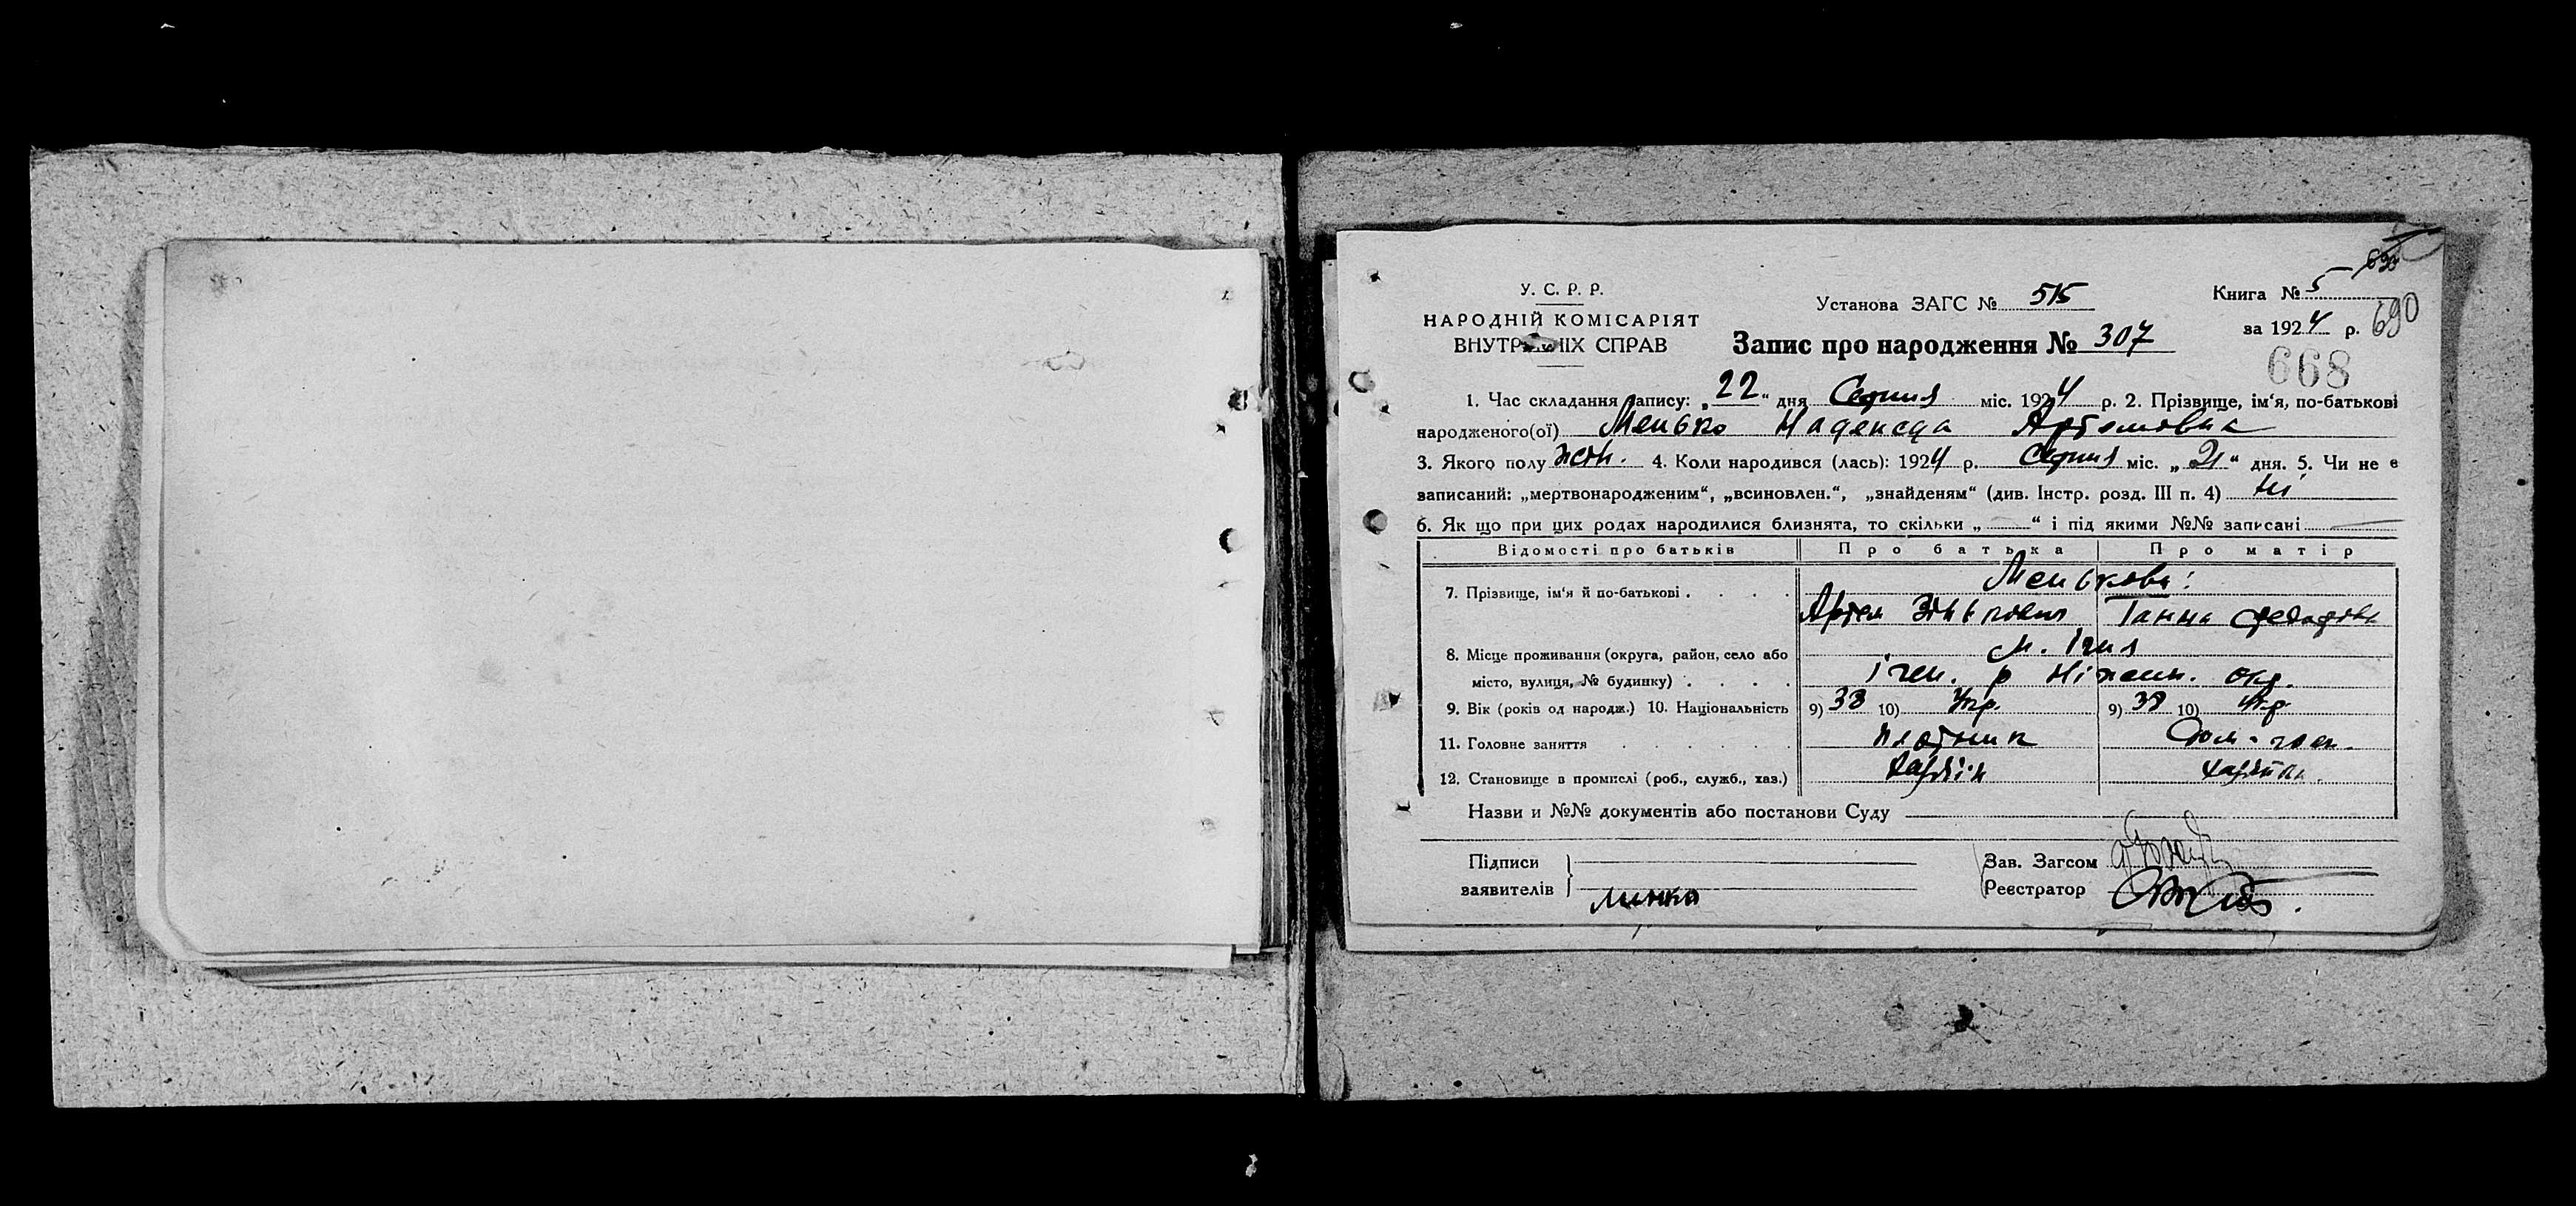 У. С. Р. Р.
НАРОДНІЙ КОМІСАРІЯТ
ВНУТРІШНІХ СПРАВ
Установа ЗАГС № 515
Запис про народження № 307
Книга № 5
за 1924 р.
690
668
1. Час складання запису: „22“ дня Серпня міс. 1924 р. 2. Прізвище, ім‘я, по-батькові
народженого(ої) Менько Надежда Артемовна
3. Якого полу жін. 4. Коли народився (лась): 1924 р. Серпня міс. „21“ дня. 5. Чи не є
записаний: „мертвонародженим“, „всиновлен.“, „знайденям“ (див. Інстр. розд. III п. 4) Ні
6. Як що при цих родах народилися близнята, то скільки „ “ і під якими №№ записані
Відомості про батьків Про батька Про матір
7. Прізвище, ім‘я й по-батькові Менькови:
Артем Зінькович Ганна Федоровн
8. Місце проживання (округа, район, село або м. Ічня
місто, вулиця, № будинку) Ічен. р Ніженн. окр.
9. Вік (років од народж.) 10. Національність 9) 38 10) Укр. 9) 38 10) Укр.
11. Головне заняття Плотник Дом. госп.
12. Становище в промислі (роб., служб., хаз.) Хазяїн Хазяйка
Назви и №№ документів або постанови Суду
Підписи
заявителів
Менко
Зав. Загсом
Реєстратор